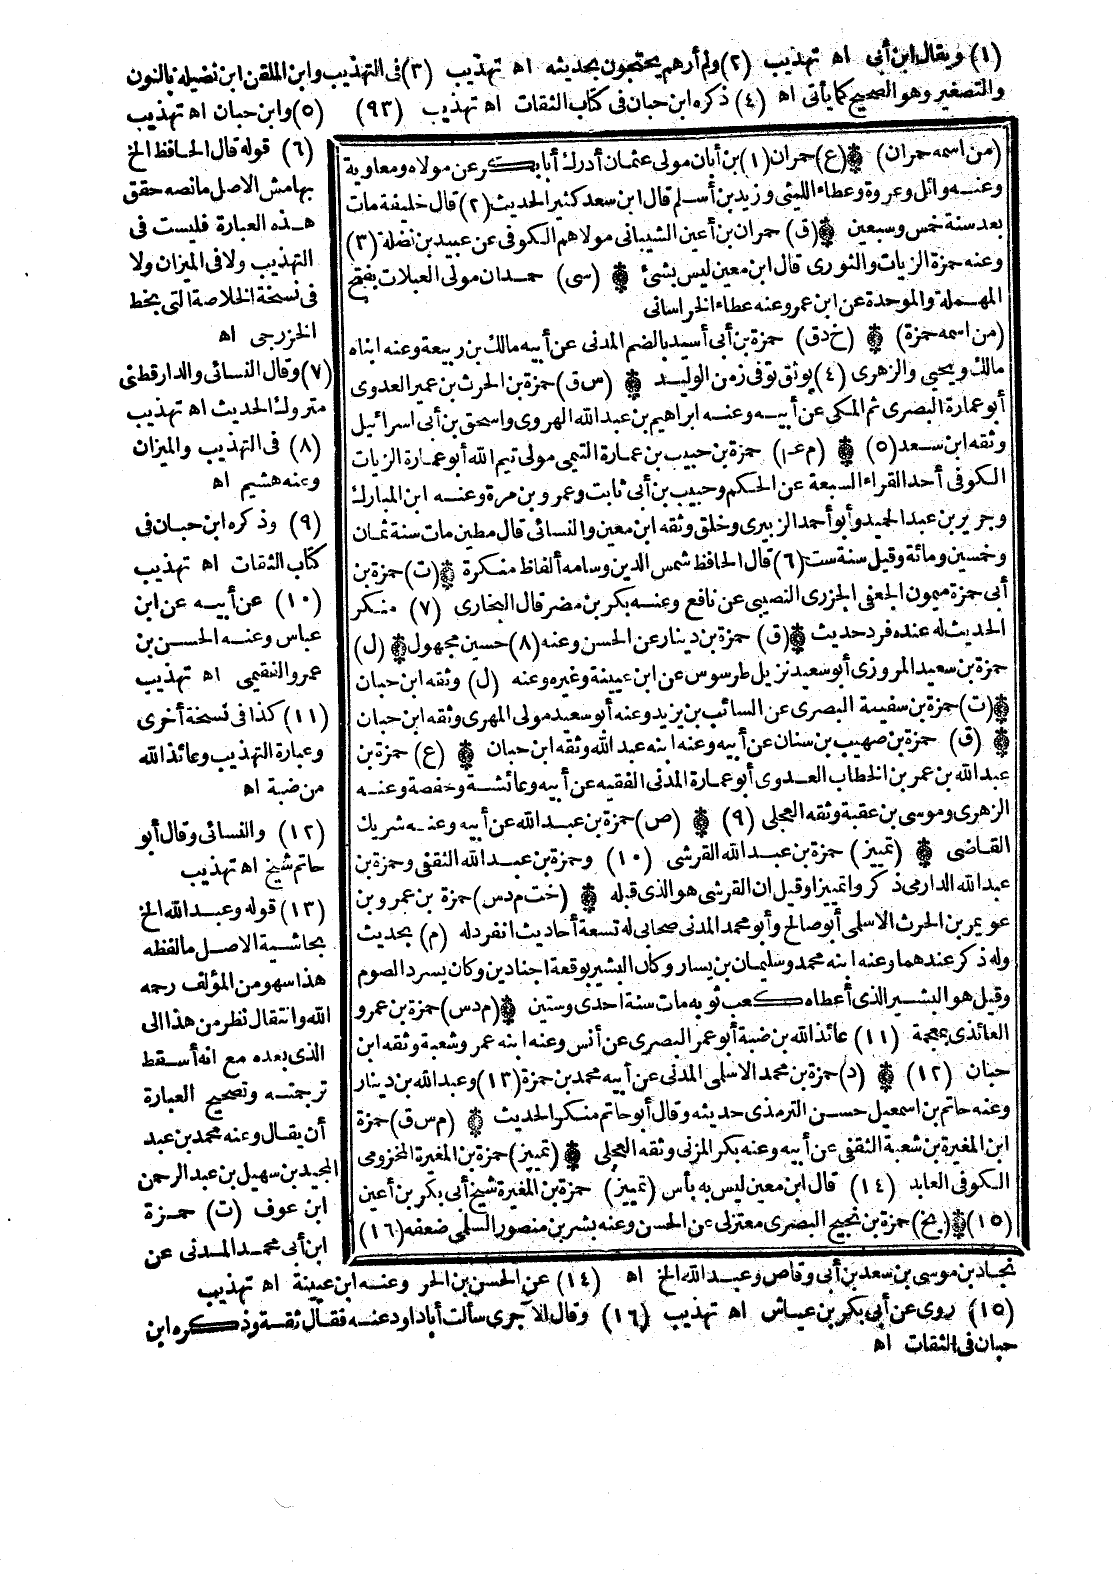 (١) ويقال ابن أبى اه تهذيب (٢) ولم أرهم يحتجون بحديثه اه تهذيب (٣) فى التهذيب وابن الملقن ابن نضيلة بالنون
والتصغير وهو الصحيح كما يأتى اه (٤) ذكره ابن حبان فى كتاب الثقات اه تهذيب (٩٣) (٥) وابن حبان اه تهذيب
(من اسمه حمران) (ع) حمران (١) بن أبان مولى عثمان أدرك أبا بكر عن مولاه ومعاوية
وعنه وائل وعروة وعطاء الليثى وزيد بن أسلم قال ابن سعد كثير الحديث (٢) قال خليفة مات
بعد سنة خمس وسبعين (ق) حمران بن أعين الشيبانى مولاهم الكوفى عن عبيد بن نضلة (٣)
وعنه حمزة الزيات والثورى قال ابن معين ليس بشئ (سى) حمدان مولى العبلات بفتح
المهملة والموحدة عن ابن عمر وعنه عطاء الخراسانى
(من اسمه حمزة) (خ د ق) حمزة بن أبى أسيد بالضم المدنى عن أبيه مالك بن ربيعة وعنه ابناه
مالك ويحيى والزهرى (٤) يوثق توفى زمن الوليد (س ق) حمزة بن الحرث بن عمير العدوى
أبو عمارة البصرى ثم المكى عن أبيه وعنه ابراهيم بن عبد الله الهروى واسحق بن أبى اسرائيل
وثقه ابن سعد (٥) (م عـ ا) حمزة بن حبيب بن عمارة التيمى مولى تيم الله أبو عمارة الزيات
الكوفى أحد القراء السبعة عن الحكم وحبيب بن أبى ثابت وعمرو بن مرة وعنه ابن المبارك
وجرير بن عبد الحميد وأبو أحمد الزبيرى وخلق وثقه ابن معين والنسائى قال مطين مات سنة ثمان
وخمسين ومائة وقيل سنة ست (٦) قال الحافظ شمس الدين وسامه ألفاظ منكرة (ت) حمزة بن
أبى حمزة ميمون الجعفى الجزرى النصيبى عن نافع وعنه بكر بن مضر قال البخارى (٧) منكر
الحديث له عنده فرد حديث (ق) حمزة بن دينار عن الحسن وعنه (٨) حسين مجهول (ل)
حمزة بن سعيد المروزى أبو سعيد نزيل طرسوس عن ابن عيينة وغيره وعنه (ل) وثقه ابن حبان
(ت) حمزة بن سفينة البصرى عن السائب بن يزيد وعنه أبو سعيد مولى المهرى وثقه ابن حبان
(ق) حمزة بن صهيب بن سنان عن أبيه وعنه ابنه عبد الله وثقه ابن حبان (ع) حمزة بن
عبد الله بن عمر بن الخطاب العدوى أبو عمارة المدنى الفقيه عن أبيه وعائشة وحفصة وعنه
الزهرى وموسى بن عقبة وثقه العجلى (٩) (ص) حمزة بن عبد الله عن أبيه وعنه شريك
القاضى (تمييز) حمزة بن عبد الله القرشى (١٠) وحمزة بن عبد الله الثقفى وحمزة بن
عبد الله الدارمى ذكروا تمييزا وقيل ان القرشى هو الذى قبله (خت م د س) حمزة بن عمرو بن
عويمر بن الحرث الاسلمى أبو صالح وأبو محمد المدنى صحابى له تسعة أحاديث انفرد له (م) بحديث
وله ذكر عندهما وعنه ابنه محمد وسليمان بن يسار وكان البشير بوقعة اجنادين وكان يسرد الصوم
وقيل هو البشير الذى أعطاه كعب ثوبه مات سنة احدى وستين (م د س) حمزة بن عمرو
العائذى بمعجمة (١١) عائذ الله بن ضبة أبو عمر البصرى عن أنس وعنه ابنه عمر وشعبة وثقه ابن
حبان (١٢) (د) حمزة بن محمد الاسلمى المدنى عن أبيه محمد بن حمزة (١٣) وعبد الله بن دينار
وعنه حاتم بن اسمعيل حسن الترمذى حديثه وقال أبو حاتم منكر الحديث (م س ق) حمزة
ابن المغيرة بن شعبة الثقفى عن أبيه وعنه بكر المزنى وثقه العجلى (تمييز) حمزة بن المغيرة المخزومى
الكوفى العابد (١٤) قال ابن معين ليس به بأس (تمييز) حمزة بن المغيرة شيخ أبى بكر بن أعين
(١٥) (بخ) حمزة بن نجيح البصرى معتزلى عن الحسن وعنه بشر بن منصور السلمى ضعفه (١٦)
(٦) قوله قال الحافظ الخ
بهامش الاصل مانصه حقق
هذه العبارة فليست فى
التهذيب ولا فى الميزان ولا
فى نسخة الخلاصة التى بخط
الخزرجى اه
(٧) وقال النسائى والدارقطنى
متروك الحديث اه تهذيب
(٨) فى التهذيب والميزان
وعنه هشيم اه
(٩) وذكره ابن حبان فى
كتاب الثقات اه تهذيب
(١٠) عن أبيه عن ابن
عباس وعنه الحسن بن
عمرو الفقيمى اه تهذيب
(١١) كذا فى نسخة أخرى
وعبارة التهذيب وعائذ الله
من ضبة اه
(١٢) والنسائى وقال أبو
حاتم شيخ اه تهذيب
(١٣) قوله وعبد الله الخ
بحاشية الاصل مالفظه
هذا سهو من المؤلف رحمه
الله وانتقال نظر من هذا الى
الذى بعده مع انه أسقط
ترجمته وتصحيح العبارة
أن يقال وعنه محمد بن عبد
المجيد بن سهيل بن عبد الرحمن
ابن عوف (ت) حمزة
ابن أبى محمد المدنى عن
نجاد بن موسى بن سعد بن أبى وقاص وعبد الله الخ اه (١٤) عن الحسن بن الحر وعنه ابن عيينة اه تهذيب
(١٥) روى عن أبى بكر بن عياش اه تهذيب (١٦) وقال الآجرى سألت أبا داود عنه فقال ثقة وذكره ابن
حبان فى الثقات اه